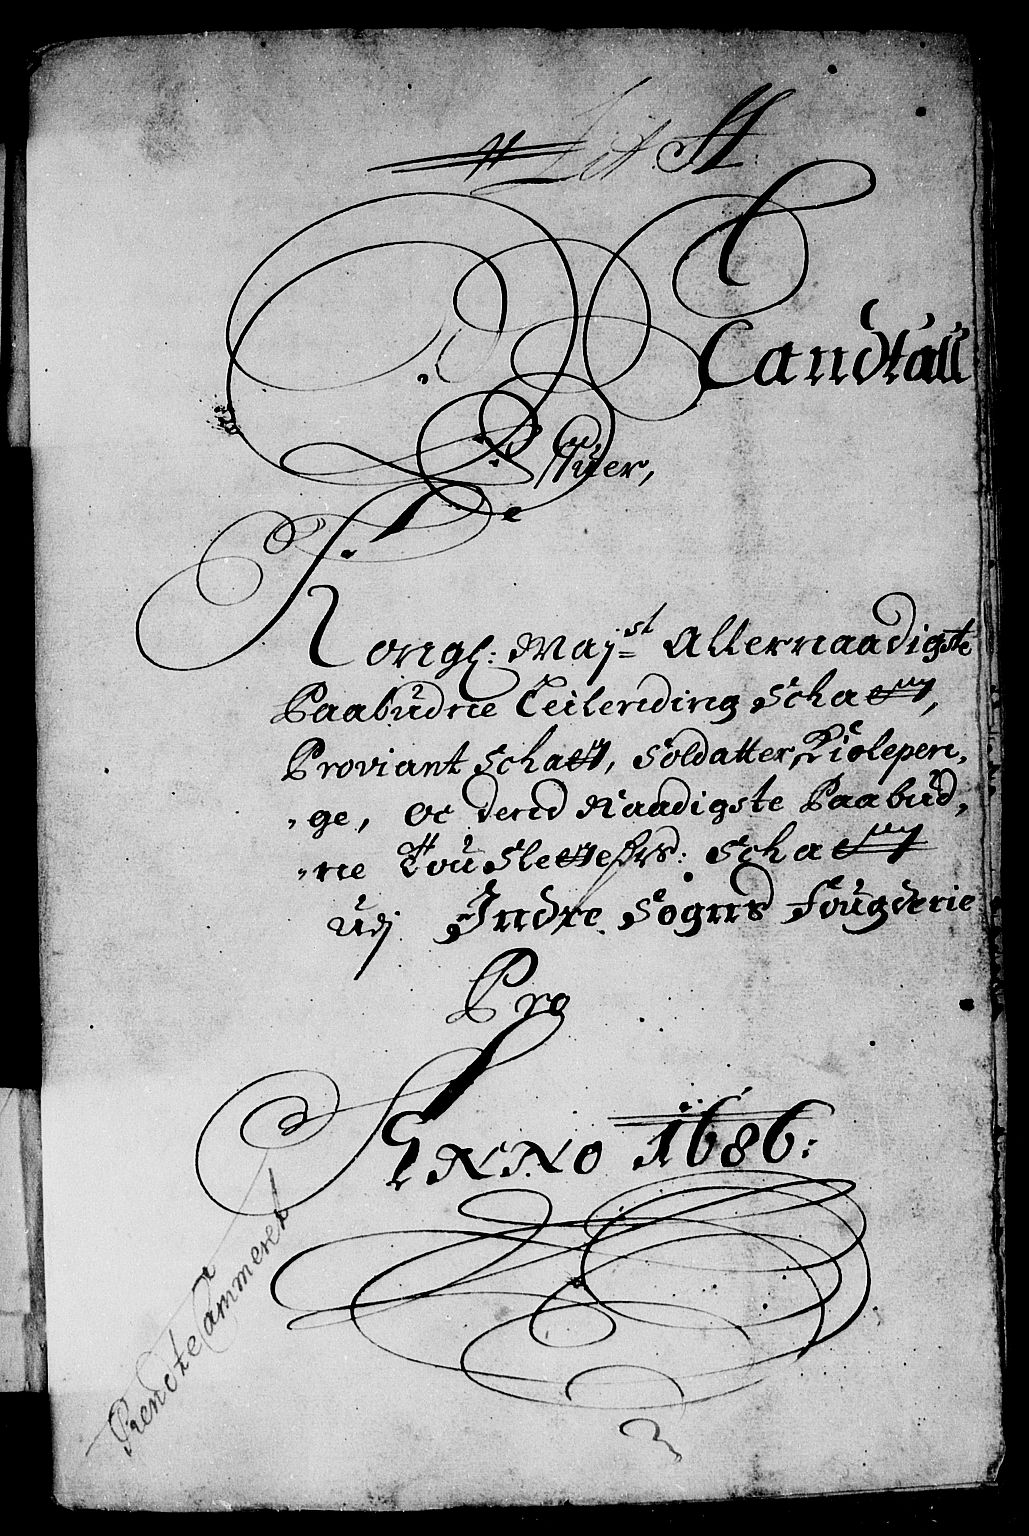 Lit A
Mandtall
Offuer,
Kongl: Maj:st Allernaadigste
Paabudne Leilending Schatt,
Proviant Schatt, Soldatter Kiolepen,
-ge, oc dend Naadigste Paabud,
-ne
Schatt
udj Indre Sogns Fougderie
Pro
ANNO 1686:
Rendte Cammeret
3